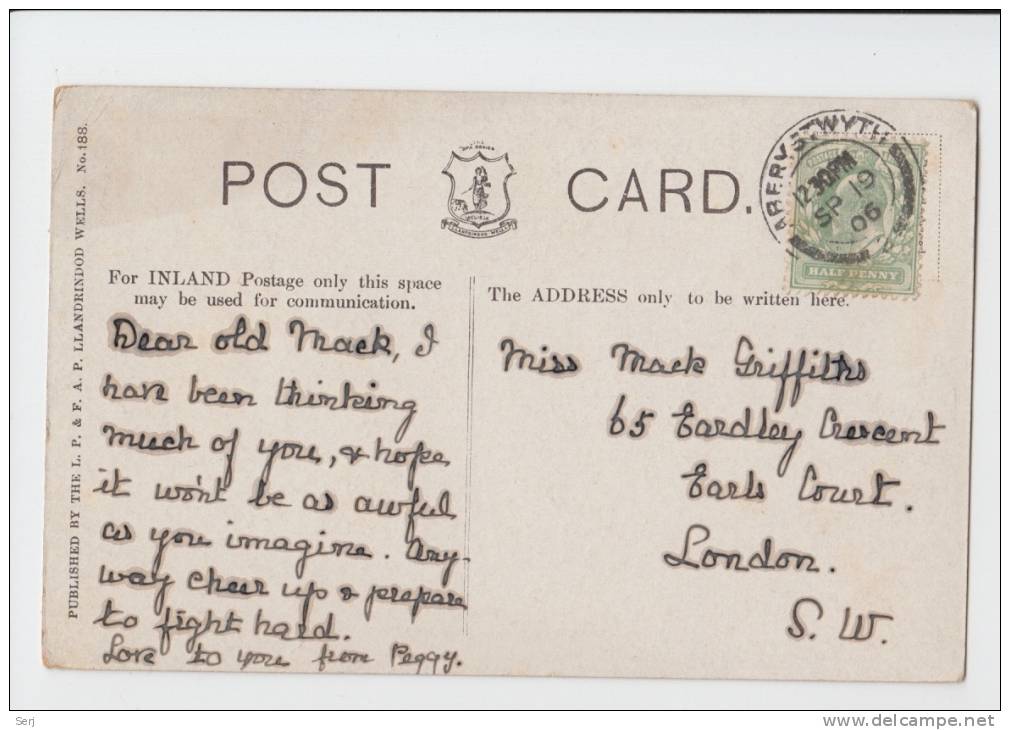 PUBLISHED BY THE L. P. & F. A. P. LLANDRINDOD WELLS. No. 188.
POST CARD.
ABERYSTWYTH
12.30PM
SP 19
06
HALF PENNY
For INLAND Postage only this space
may be used for communication.
The ADDRESS only to be written here.
Dear old Mack, I
have been thinking
much of you, & hope
it won't be as awful
as you imagine. Any-
way cheer up & prepare
to fight hard.
Love to you from Peggy.
Miss Mack Griffiths
65 Eardley Crescent
Earls Court.
London.
S. W.
Serj
www.delcampe.net